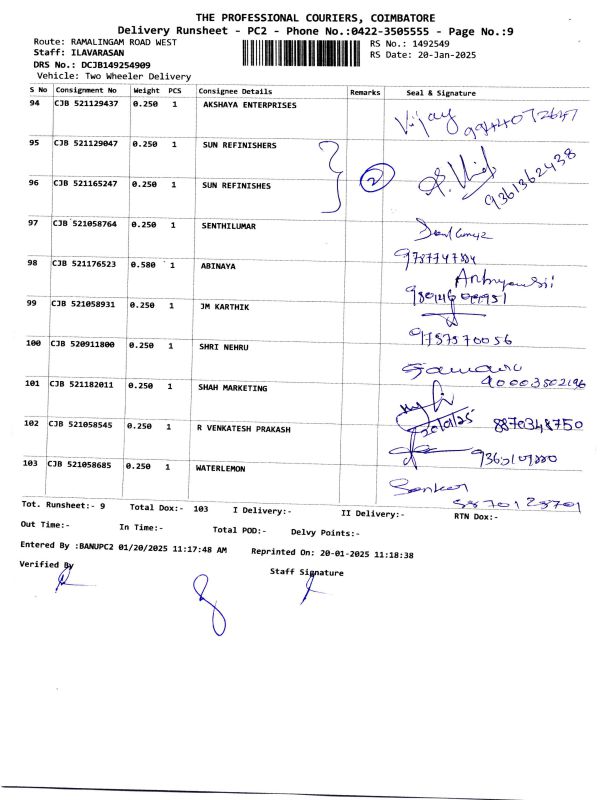 THE PROFESSIONAL COURIERS, COIMBATORE
Delivery Runsheet - PC2 - Phone No.:0422-3505555 - Page No.:9
Route: RAMALINGAM ROAD WEST RS No.: 1492549
Staff: ILAVARASAN RS Date: 20-Jan-2025
DRS No.: DCJB149254909
Vehicle: Two Wheeler Delivery
S No Consignment No Weight PCS Consignee Details Remarks Seal & Signature
94 CJB 521129437 0.250 1 AKSHAYA ENTERPRISES Vijay 9944072647
95 CJB 521129047 0.250 1 SUN REFINISHERS
2
96 CJB 521165247 0.250 1 SUN REFINISHES 9361362438
97 CJB 521058764 0.250 1 SENTHILUMAR
98 CJB 521176523 0.580 1 ABINAYA
99 CJB 521058931 0.250 1 JM KARTHIK
9757570056
100 CJB 520911800 0.250 1 SHRI NEHRU
90003502196
101 CJB 521182011 0.250 1 SHAH MARKETING
20/01/25 8870348750
102 CJB 521058545 0.250 1 R VENKATESH PRAKASH
103 CJB 521058685 0.250 1 WATERLEMON
Sankar
Tot. Runsheet:- 9 Total Dox:- 103 I Delivery:- II Delivery:- RTN Dox:-
Out Time:- In Time:- Total POD:- Delvy Points:-
Entered By :BANUPC2 01/20/2025 11:17:48 AM Reprinted On: 20-01-2025 11:18:38
Verified By Staff Signature